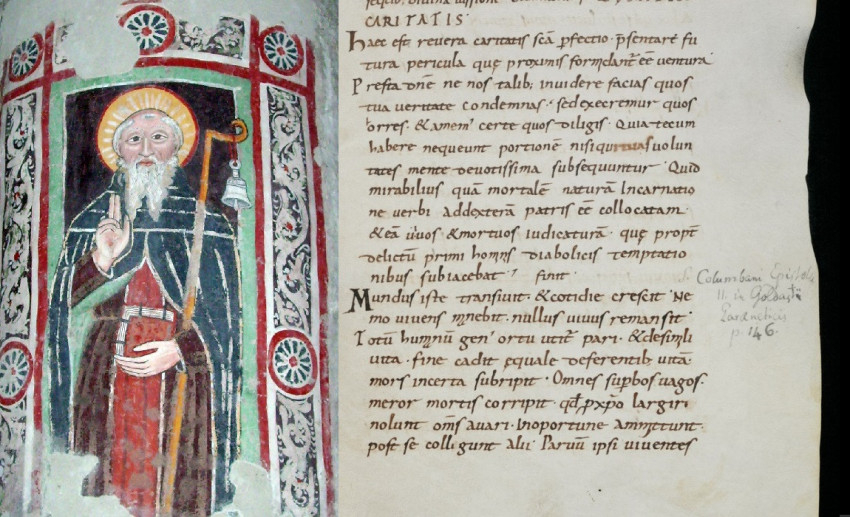 CARITATIS
Haec est reuera caritatis scā pfectio. psentare fu
tura pericula quę proximis formidant eē uentura
Presta dne ne nos talib; inuidere facias quos
tua ueritate condemnas. sed execremur quos
orres. & amem' certe quos diligis. Quia tecum
habere nequeunt portionē nisi qui tuas uolun
tates mente deuotissima subsequuntur. Quid
mirabilius quā mortalē naturā Incarnatio
ne uerbi addexterā patris eē collocatam.
& eā uiuos & mortuos iudicaturā. quę propt
delictū primi hominis diabolicis temptatio
nibus subiacebat; finit.
Mundus iste transiuit. & cotidie crescit Ne
mo uiuens manebit. nullus uiuus remansit
Totū humanū gen' ortu utit' pari. & desimili
uita. fine cadit ęquale Deferentib; uitā
mors incerta subripit. Omnes supbos uagos.
meror mortis corripit. qd p xpo largiri
nolunt oms auari. Inoportune amittunt.
post se colligunt alii Paruū ipsi uiuentes
Columbani Epistola
II. in Goldasti
Paraeneticis
p. 146.